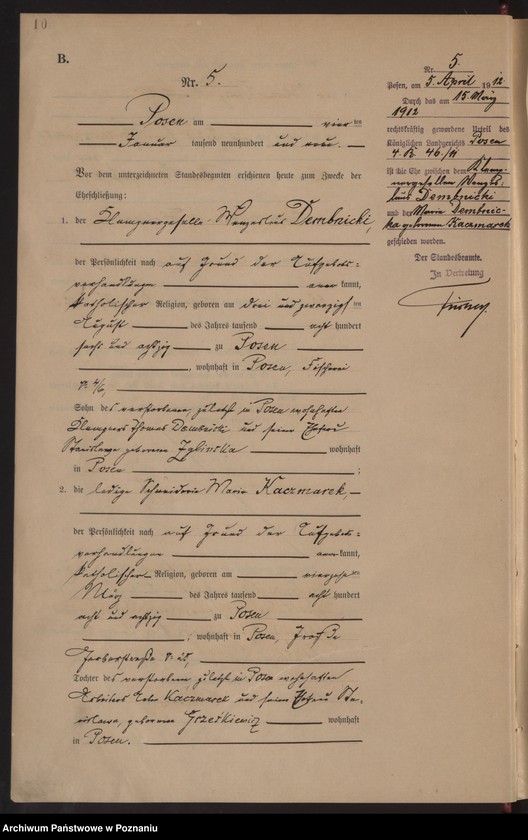 10
B.
Nr. 5.
Posen am vierten
Januar tausend neunhundert und neun.
Vor dem unterzeichneten Standesbeamten erschienen heute zum Zwecke der
Eheschließung:
1. der Klempnergeselle Wenzeslaus Dembnicki,
der Persönlichkeit nach auf Grund der Aufgebots-
verhandlungen kannt,
katholischer Religion, geboren am drei und zwanzigsten
August des Jahres tausend acht hundert
sechs und achtzig zu Posen
, wohnhaft in Posen, Fischerei
Nr. 4/6,
Sohn des verstorbenen, zuletzt in Posen wohnhaften
Klempners Thomas Dembnicki und seiner Ehefrau
Stanislawa geborenen Zglinska wohnhaft
in Posen ;
2. die ledige Schneiderin Maria Kaczmarek,
der Persönlichkeit nach auf Grund der Aufgebots-
verhandlungen kannt,
katholischer Religion, geboren am vierzehnten
März des Jahres tausend acht hundert
acht und achtzig zu Posen
, wohnhaft in Posen, Große
Gerberstraße Nr. 25,
Tochter des verstorbenen, zuletzt in Posen wohnhaften
Arbeiters Kaczmarek und seiner Ehefrau Sta-
nislawa, geborenen Grześkiewicz wohnhaft
in Posen.
Nr. 5.
Posen, am 5. April 1912.
Durch das am 15. März
1912
rechtskräftig gewordene Urteil des
Königlichen Landgerichts Posen
4. R. 46./11
ist die Ehe zwischen dem Klemp-
nergesellen Wenzes-
laus Dembnicki
und der Maria Dembnic-
ka geborenen Kaczmarek
geschieden worden.
Der Standesbeamte.
In Vertretung
Archiwum Państwowe w Poznaniu